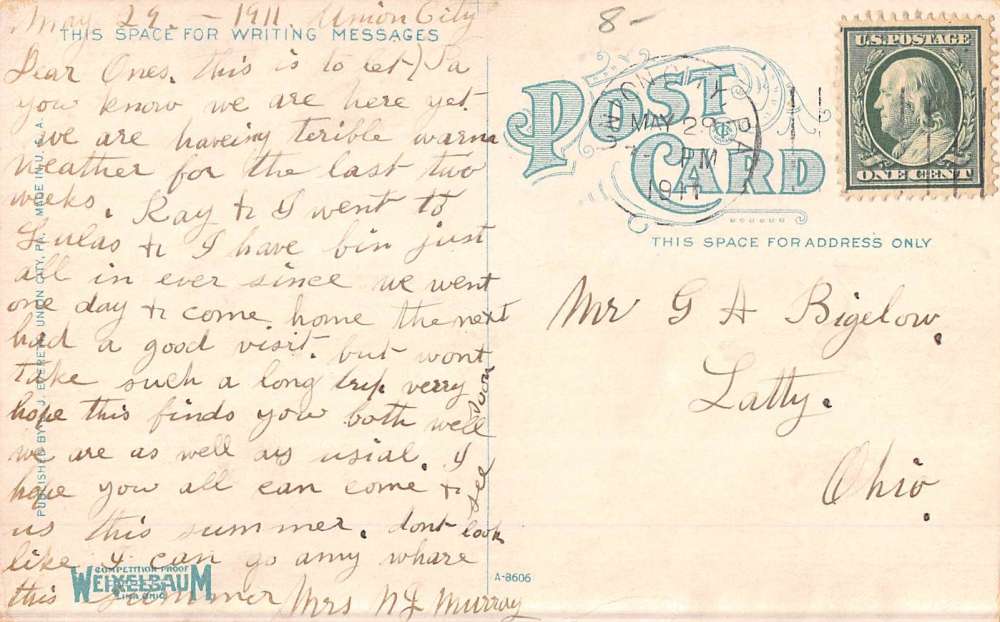 May 29 - 1911 Union City
THIS SPACE FOR WRITING MESSAGES
Dear Ones. this is to let Pa
you know we are here yet.
we are haveing terible warm
weather for the last two
weeks. Ray & I went to
Lulas & I have bin just
all in ever since we went
one day & come home the next
had a good visit. but wont
take such a long trip verry soon
hope this finds you both well
we are as well as usial. I
hope you all can come & see
us this summer. dont look
like I can go amy whare
this summer Mrs N J Murray
PUBLISHED BY J. EVERETT UNION CITY, PA. MADE IN U.S.A.
COMPETITION PROOF
WEIXELBAUM
LIMA OHIO
A-8606
8-
POST CARD
UNION CITY PA
MAY 29
PM
1911
U.S. POSTAGE
ONE CENT
THIS SPACE FOR ADDRESS ONLY
Mr G A Bigelow.
Latty.
Ohio.